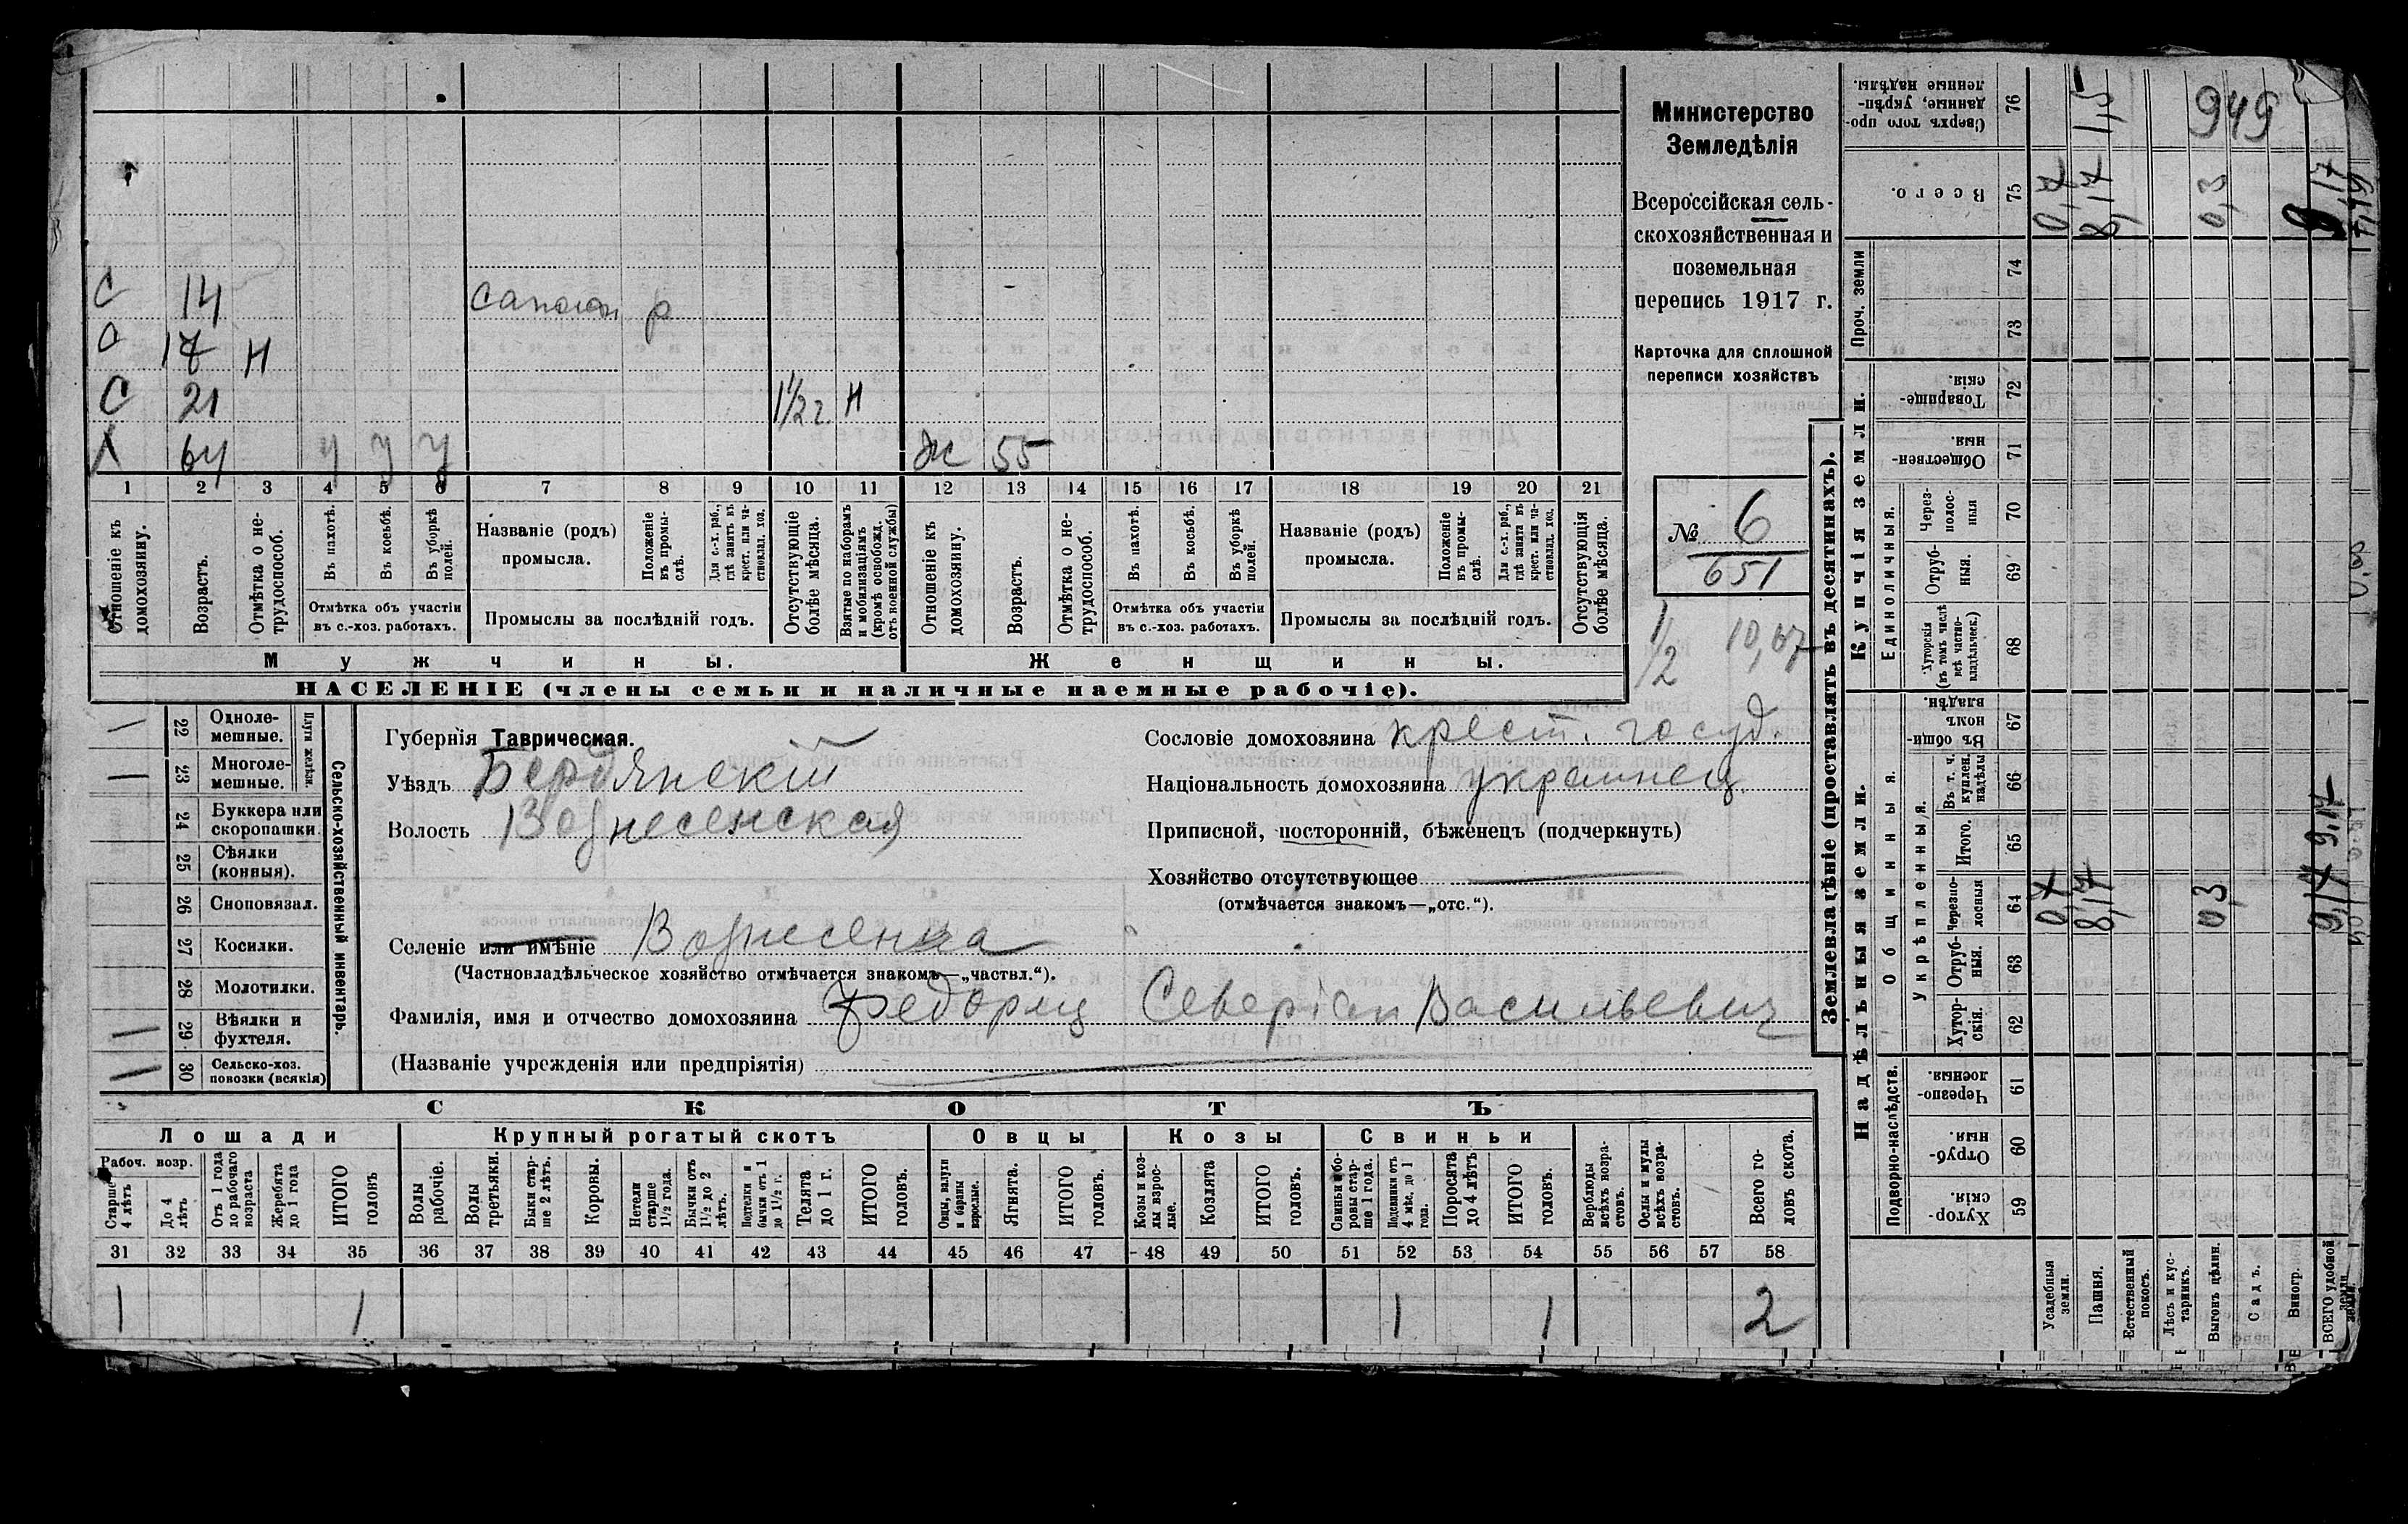 Министерство
Земледѣлія
Всероссійская сель-
скохозяйственная и
поземельная
перепись 1917 г.
Карточка для сплошной
переписи хозяйствъ
№ 6
651
1/2 10,67
С 14 сапожн р
С 17 Н
С 21 1 1/2 г. Н
Х 64 У У У Ж 55
1 2 3 4 5 6 7 8 9 10 11 12 13 14 15 16 17 18 19 20 21
Отношеніе къ домохозяину.
Возрастъ.
Отмѣтка о не-трудоспособ.
Въ пахотѣ.
Въ косьбѣ.
Въ уборкѣ полей.
Отмѣтка объ участіи
въ с.-хоз. работахъ.
Названіе (родъ)
промысла.
Положеніе въ промы-слѣ.
Для с.-х. раб., гдѣ занятъ въ крест. или ча-стновлад. хоз.
Промыслы за послѣдній годъ.
Отсутствующіе болѣе мѣсяца.
Взятые по наборамъ и мобилизаціямъ (кромѣ освобожд. отъ военной службы)
Отношеніе къ домохозяину.
Возрастъ.
Отмѣтка о не-трудоспособ.
Въ пахотѣ.
Въ косьбѣ.
Въ уборкѣ полей.
Отмѣтка объ участіи
въ с.-хоз. работахъ.
Названіе (родъ)
промысла.
Положеніе въ промы-слѣ.
Для с.-х. раб., гдѣ занята въ крест. или ча-стновлад. хоз.
Промыслы за послѣдній годъ.
Отсутствующія болѣе мѣсяца.
Мужчины. Женщины.
НАСЕЛЕНІЕ (члены семьи и наличные наемные рабочіе).
22 Одноле-мешные.
23 Многоле-мешные.
Плуги желѣзн.
24 Буккера или скоропашки.
25 Сѣялки (конныя).
26 Сноповязал.
27 Косилки.
28 Молотилки.
29 Вѣялки и фухтеля.
30 Сельско-хоз. повозки (всякія)
Сельско-хозяйственный инвентарь.
Губернія Таврическая.
Уѣздъ Бердянскій
Волость Вознесенская
Селеніе или имѣніе Вознесенка
(Частновладѣльческое хозяйство отмѣчается знакомъ—„частвл.“).
Фамилія, имя и отчество домохозяина Федоряц Северіан Васильевич
(Названіе учрежденія или предпріятія)
Сословіе домохозяина крест. госуд.
Національность домохозяина украинец
Приписной, посторонній, бѣженецъ (подчеркнуть)
Хозяйство отсутствующее
(отмѣчается знакомъ—„отс.“).
СКОТЪ
Лошади Крупный рогатый скотъ Овцы Козы Свиньи
Рабоч. возр.
Старше 4 лѣтъ
До 4 лѣтъ
Отъ 1 года до рабочаго возраста
Жеребята до 1 года
ИТОГО головъ
Волы рабочіе.
Волы третьяки.
Быки стар-ше 2 лѣтъ.
Коровы.
Нетели старше 1½ года.
Бычки отъ 1½ до 2 лѣтъ.
Подтелки и бычки отъ 1 до 1½ г.
Телята до 1 г.
ИТОГО головъ.
Овцы, валухи и бараны взрослые.
Ягнята.
ИТОГО головъ.
Козы и коз-лы взрос-лые.
Козлята
ИТОГО головъ.
Свиньи и бо-ровы стар-ше 1 года.
Подсвинки отъ 4 мѣс. до 1 года.
Поросята до 4 лѣтъ
ИТОГО головъ.
Верблюды всѣхъ возра-стовъ.
Ослы и мулы всѣхъ возра-стовъ.
Всего го-ловъ скота.
31 32 33 34 35 36 37 38 39 40 41 42 43 44 45 46 47 48 49 50 51 52 53 54 55 56 57 58
1 1 1 1 2
Землевладѣніе (проставлять въ десятинахъ).
Надѣльныя земли. Купчія земли.
Подворно-наслѣдств.
Общинныя.
Укрѣпленныя.
Единоличныя.
Проч. земли
Сверхъ того про-данные, укрѣп-ленные надѣлы. 76 1,5 949
Всего. 75 0,7 8,17 0,3 9,17
74
73
Товарище-скія. 72
Обществен-ныя. 71
Через-полос-ныя 70
Отруб-ныя. 69
Хуторскія (въ томъ числѣ всѣ частно-владѣльческ.) 68
Въ общи-номъ владѣн. 67
Въ т. ч. куплен. надѣлы 66
Итого. 65
Черезпо-лосныя 64 0,7 8,17 0,3 9,17
Отруб-ныя. 63
Хутор-скія. 62
Черезпо-лосныя. 61
Отруб-ныя. 60
Хутор-скія. 59
Усадебныя земли.
Пашня.
Естественный покосъ.
Лѣсъ и кус-тарникъ.
Выгонъ цѣлин.
Садъ.
Виногр.
ВСЕГО удобной земли